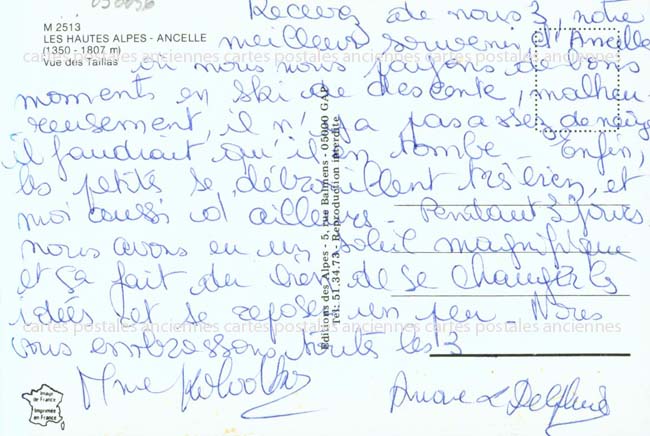 050056
M 2513
LES HAUTES ALPES - ANCELLE
(1350 - 1807 m)
Vue des Taillas
Recevez de nous 3 notre
meilleur souvenir d'Ancelle
où nous nous payons de bons
moments en ski de descente, malheu-
reusement, il n'y a pas assez de neige
il faudrait qu'il en tombe - Enfin,
les petits se débrouillent très bien, et
moi aussi d'ailleurs - Pendant 3 jours
nous avons eu un soleil magnifique
et ça fait du bien de se changer les
idées et se reposer un peu - Nous
vous embrassons toutes les 3
Mme
Delphine
Editions des Alpes - 5, rue Balmens - 05000 GAP
Tél: 51.34.73 - Reproduction interdite
cartes postales anciennes cartes postales anciennes cartes postales anciennes
cartes postales anciennes cartes postales anciennes cartes postales anciennes
cartes postales anciennes cartes postales anciennes cartes postales anciennes
Imprimée
en France